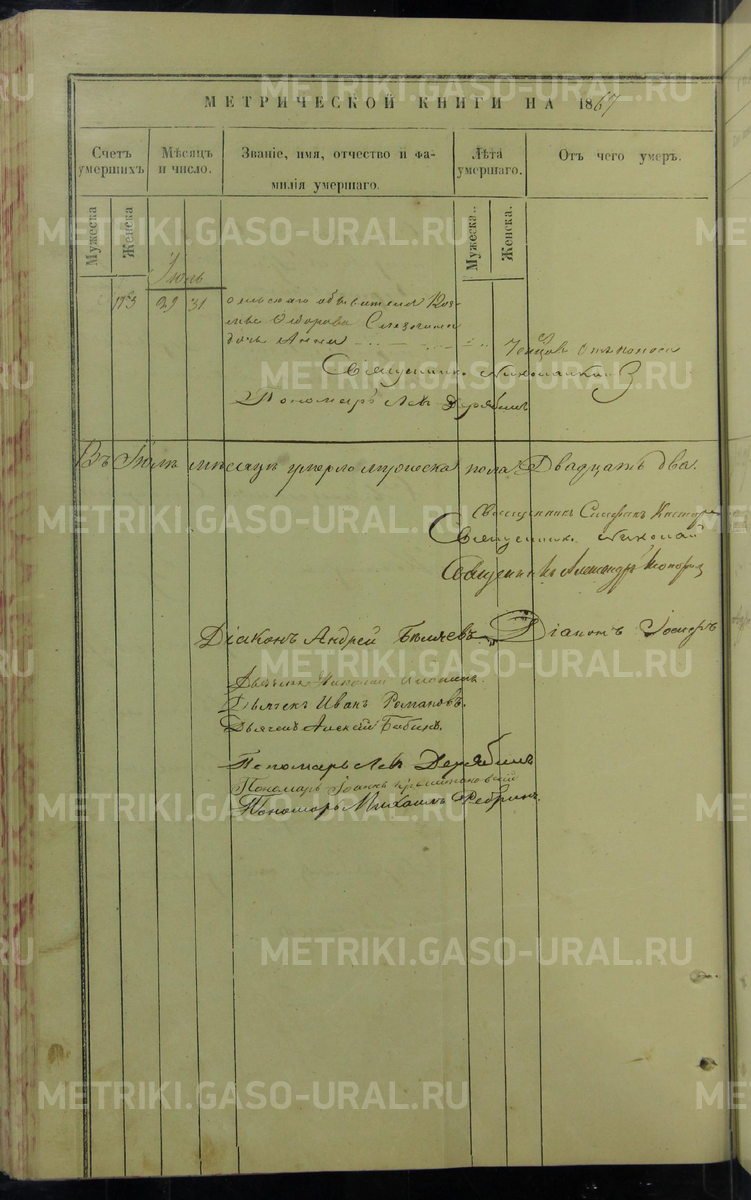 МЕТРИЧЕСКОЙ КНИГИ НА 1867
Счетъ умершихъ
Мѣсяцъ и число.
Званіе, имя, отчество и фамилія умершаго.
Лѣта умершаго.
Отъ чего умеръ.
Мужеска
Женска
Мужеска.
Женска.
Іюль
173 29 31 сельскаго обывателя Коз-
дочь Анна
отъ поноса
Священникъ Николай
Пономарь Левъ Дерябинъ
Въ Іюлѣ мѣсяцѣ умерло мужеска пола Двадцать два.
Священникъ
Священникъ Николай
Священникъ Александръ Топорк
Діаконъ Андрей Бѣляевъ. Діаконъ Іосифъ
Дьячекъ Николай
Дьячекъ Иванъ Романовъ.
Дьячекъ Алексѣй Бабинъ.
Пономарь Левъ Дерябинъ
Пономарь Іоаннъ
Пономарь Михаилъ Ребринъ.
METRIKI.GASO-URAL.RU
METRIKI.GASO-URAL.RU
METRIKI.GASO-URAL.RU
METRIKI.GASO-URAL.RU
METRIKI.GASO-URAL.RU
METRIKI.GASO-URAL.RU
METRIKI.GASO-URAL.RU
METRIKI.GASO-URAL.RU